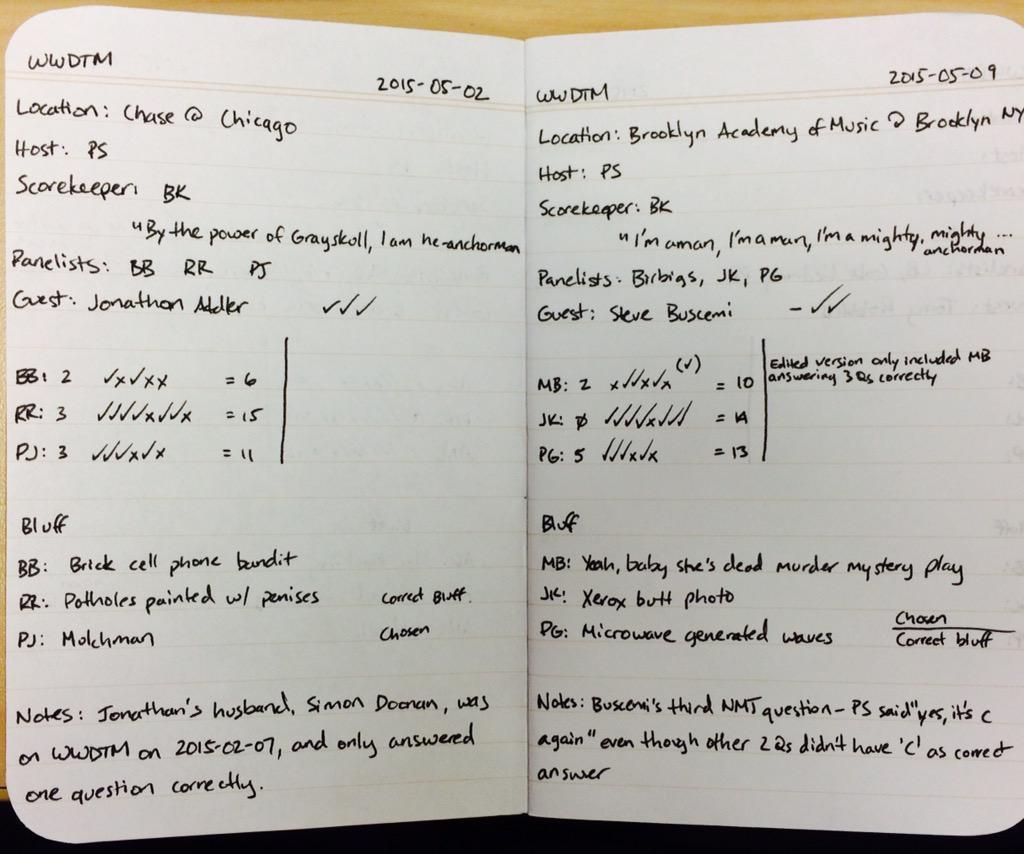 WWDTM
2015-05-02
Location: Chase @ Chicago
Host: PS
Scorekeeper: BK
"By the power of Grayskoll, I am he-anchorman
Panelists: BB RR PJ
Guest: Jonathon Adler ✓✓✓
BB: 2 ✓x✓xx = 6
RR: 3 ✓✓✓✓x✓✓x = 15
PJ: 3 ✓✓✓x✓x = 11
Bluff
BB: Brick cell phone bandit
RR: Potholes painted w/ penises Correct Bluff.
PJ: Molchman Chosen
Notes: Jonathan's husband, Simon Doonan, was
on WWDTM on 2015-02-07, and only answered
one question correctly.
WWDTM
2015-05-09
Location: Brooklyn Academy of Music @ Brooklyn NY
Host: PS
Scorekeeper: BK
"I'm a man, I'm a man, I'm a mighty, mighty ...
anchorman
Panelists: Birbigs, JK, PG
Guest: Steve Buscemi -✓✓
MB: 2 x✓✓x✓x (✓) = 10
JK: 0 ✓✓✓✓x✓✓✓ = 14
PG: 5 ✓✓✓x✓x = 13
Edited version only included MB
answering 3 Qs correctly
Bluff
MB: Yeah, baby she's dead murder mystery play
JK: Xerox butt photo
PG: Microwave generated waves
Chosen
Correct bluff
Notes: Buscemi's third NMT question - PS said "yes, it's C
again" even though other 2 Qs didn't have 'C' as correct
answer